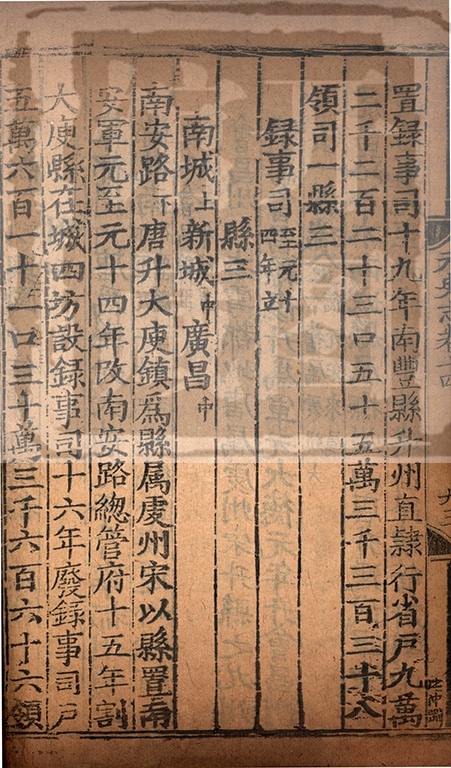 置録事司十九年南豐縣升州直隷行省戶九萬
二千二百二十三口五十五萬三千三百三十八
領司一縣三
録事司至元十四年立
縣三
南城上新城中廣昌中
南安路下唐升大庾鎮爲縣属虔州宋以縣置南
安軍元至元十四年改南安路總管府十五年割
大庾縣在城四坊設録事司十六年廢録事司戶
五萬六百一十一口三十萬三千六百六十六領